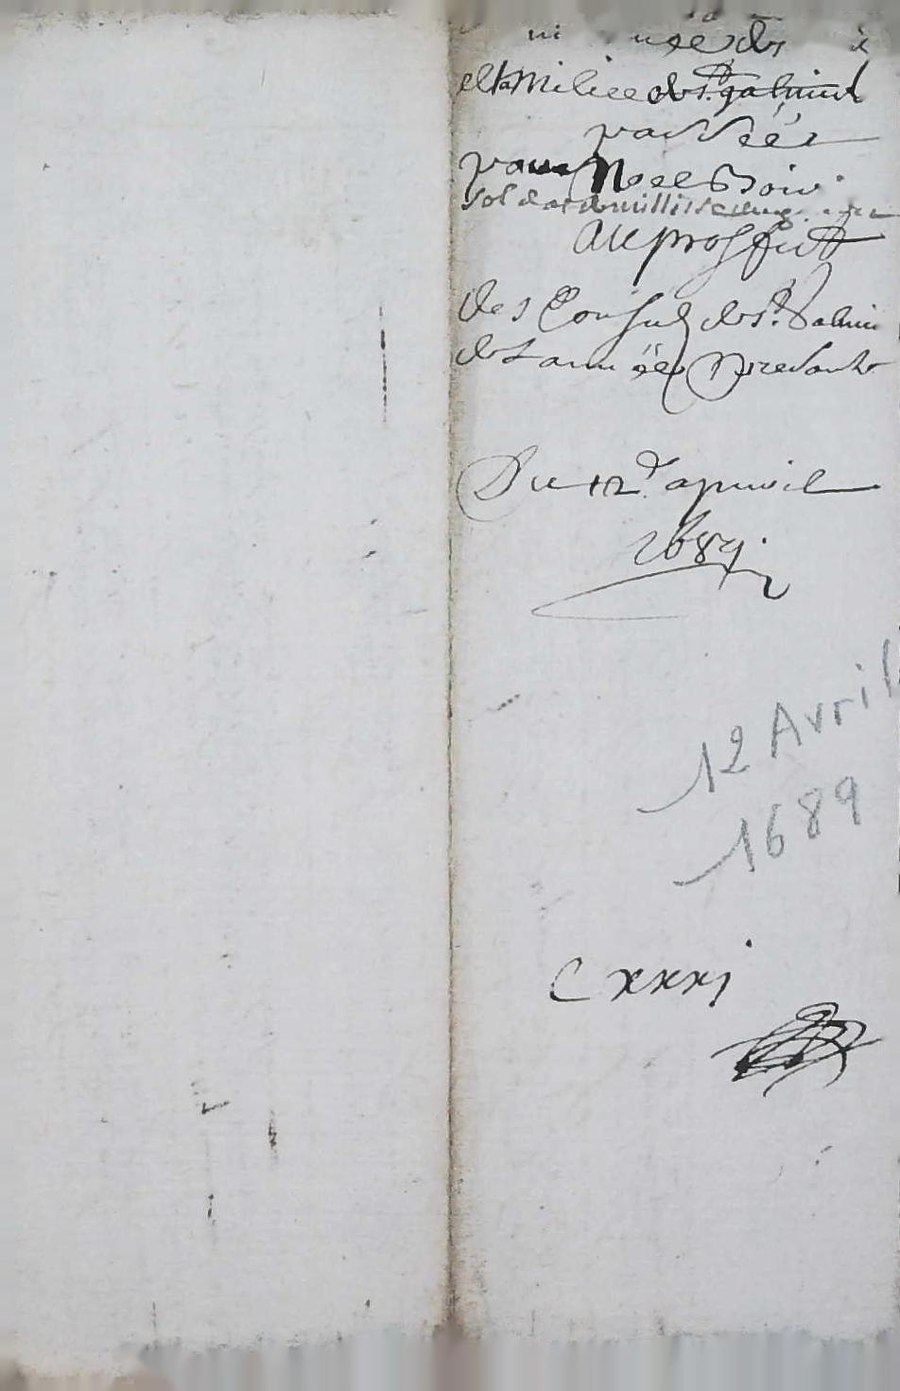 et la Milice de St. galmier
passée
par Noel
soldat de millisse
au proffit
des Consuls de St. Galmier
de L année presante
Du 12e apvril
1689.
12 Avril
1689
Cxxxj